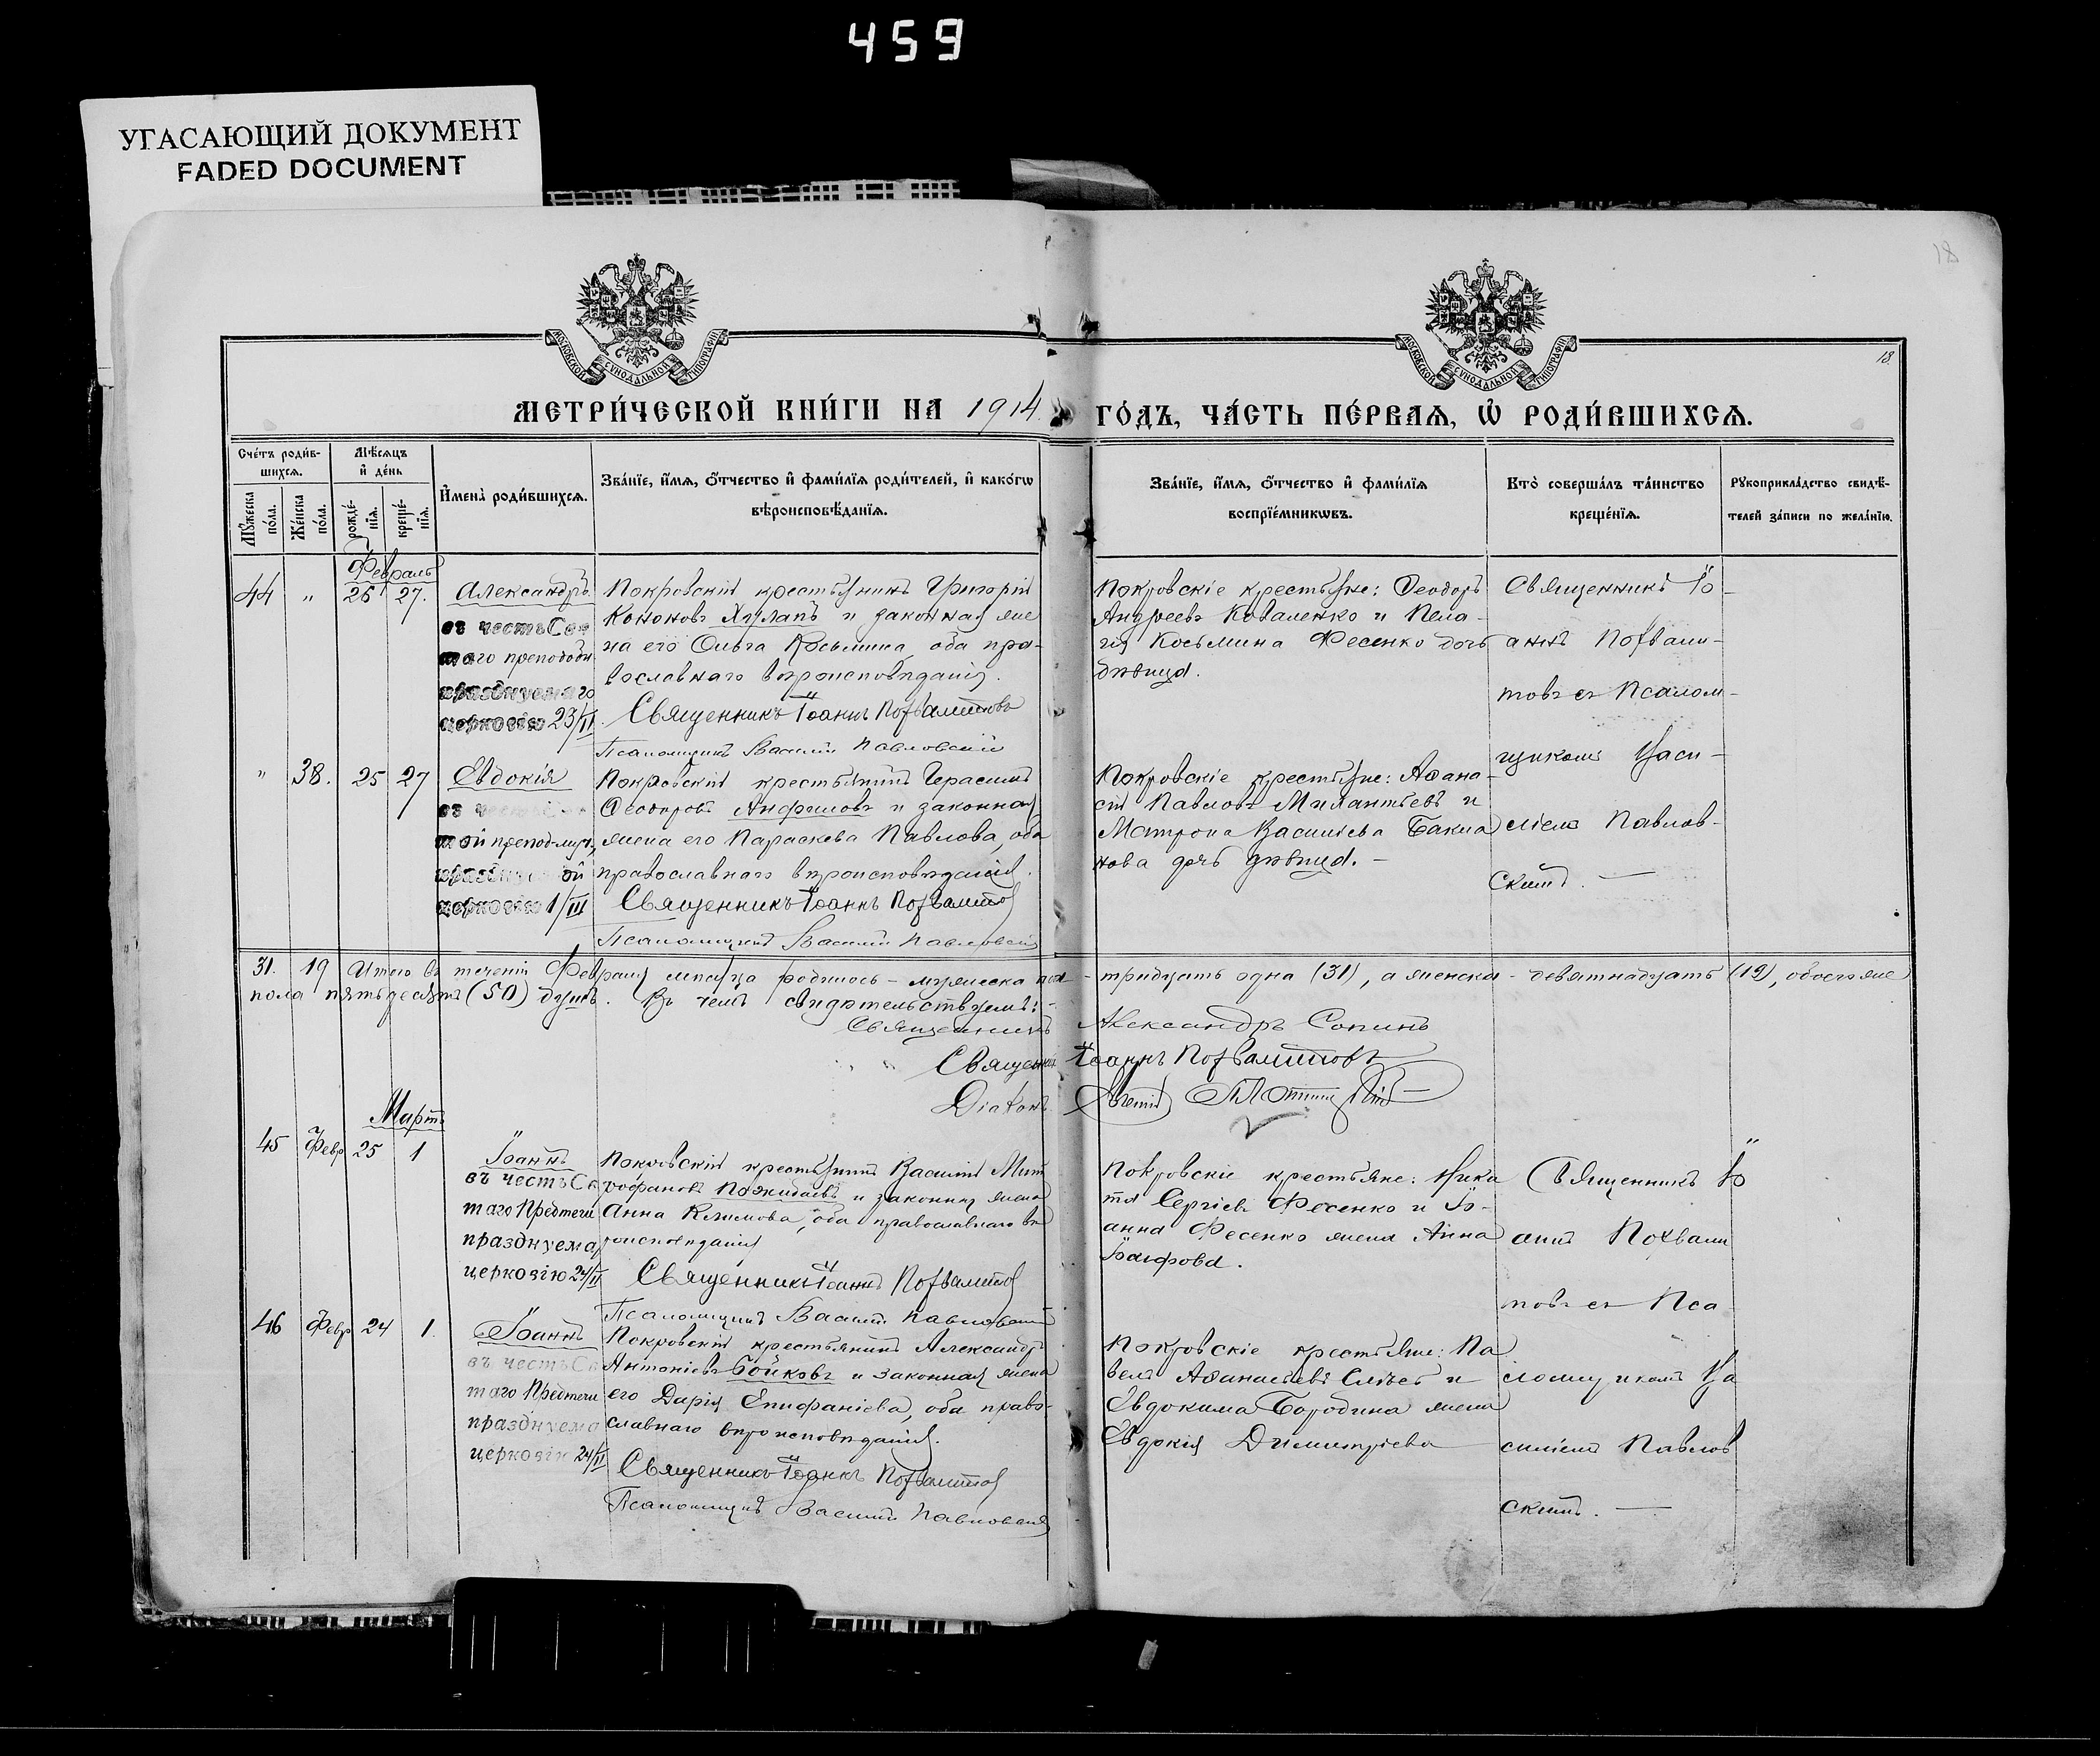 459
УГАСАЮЩИЙ ДОКУМЕНТ
FADED DOCUMENT
18
МОСКОВСКОЙ СУНОДАЛЬНОЙ ТИПОГРАФІИ
МОСКОВСКОЙ СУНОДАЛЬНОЙ ТИПОГРАФІИ
18
МЕТРИ́ЧЕСКОЙ КНИ́ГИ НА 1914 ГО́ДЪ, ЧА́СТЬ ПЕ́РВАЯ, Ѡ РОДИ́ВШИХСЯ.
Сче́тъ роди́в-
шихся.
Мѣ́сяцъ
и де́нь
Мꙋ́жеска по́ла.
Же́нска по́ла.
рожде́-нія.
креще́-нія.
Имена̀ роди́вшихся.
Зва́нїе, и́мя, о́тчество и фами́лїя роди́телей, и како́гѡ
вѣроисповѣ́данїя.
Зва́нїе, и́мя, о́тчество и фами́лїя
воспрїе́мникѡвъ.
Кто̀ соверша́лъ та́инство
креще́нїя.
Рꙋкоприкла́дство свидѣ́-
телей за́писи по жела́нїю.
Февраль
44 " 26 27.
Александръ
въ честь Свя
таго преподобн.
празднуемаго
церковію 23/II
Покровскій крестьянинъ Григорій
Кононовъ Хулапъ и законная же
на его Ольга Косьмина, оба пра-
вославнаго вѣроисповѣданія.
Священникъ Іоаннъ Похвалитовъ
Псаломщикъ Василій Павловскій
Покровскіе крестьяне: Ѳеодоръ
Андреевъ Коваленко и Пела-
гія Косьмина Фесенко дочь
дѣвица.
Священникъ Іо-
аннъ Похвали-
товъ съ Псалом-
щикомъ Васи-
ліемъ Павлов-
скимъ. —
" 38. 25 27
Евдокія
въ честь С
той препод-муч.
празднуемой
церковію 1/III
Покровскій крестьянинъ Герасимъ
Ѳеодоровъ Анфаловъ и законная
жена его Параскева Павлова, оба
православнаго вѣроисповѣданія.
Священникъ Іоаннъ Похвалитов
Псаломщикъ Василій Павловскій
Покровскіе крестьяне: Аѳана-
сій Павловъ Милантьевъ и
Матрона Василіева Бакла
нова дочь дѣвица. —
31. 19 Итого въ теченіи Февраля мѣсяца родилось - мужеска пол - тридцать одна (31), а женска - девятнадцать (19), обоего же
пола пятьдесятъ (50) душъ. Въ чемъ свидѣтельствуемъ: -
Священникъ Александръ Сопинъ
Священникъ Іоаннъ Похвалитовъ
Діаконъ Евгеній
Мартъ
45 Февр 25 1
Іоаннъ
въ честь Св
таго Предтечи
празднуема
церковію 24/II
Покровскій крестьянинъ Василій Мит
рофановъ Пожидаевъ и законная жена
Анна Климова, оба православнаго вѣ
роисповѣданія
Священникъ Іоаннъ Похвалитов
Псаломщикъ Василій Павловскій
Покровскіе крестьяне: Ники
та Сергіевъ Фесенко и Іо-
анна Фесенко жена Анна
Священникъ Іо
аннъ Похвали
товъ съ Пса
ломщикомъ Ва
силіемъ Павлов
скимъ. —
46 Февр 24 1.
Іоаннъ
въ честь Св
таго Предтечи
празднуема
церковію 24/II
Покровскій крестьянинъ Александръ
Антоніевъ Бойковъ и законная жена
его Дарія Епифаніева, оба право-
славнаго вѣроисповѣданія.
Священникъ Іоаннъ Похвалитов
Псаломщикъ Василій Павловскій
Покровскіе крестьяне: Па
велъ Аѳанасьевъ и
Евдокима Бородина жена
Евдокія Димитріева